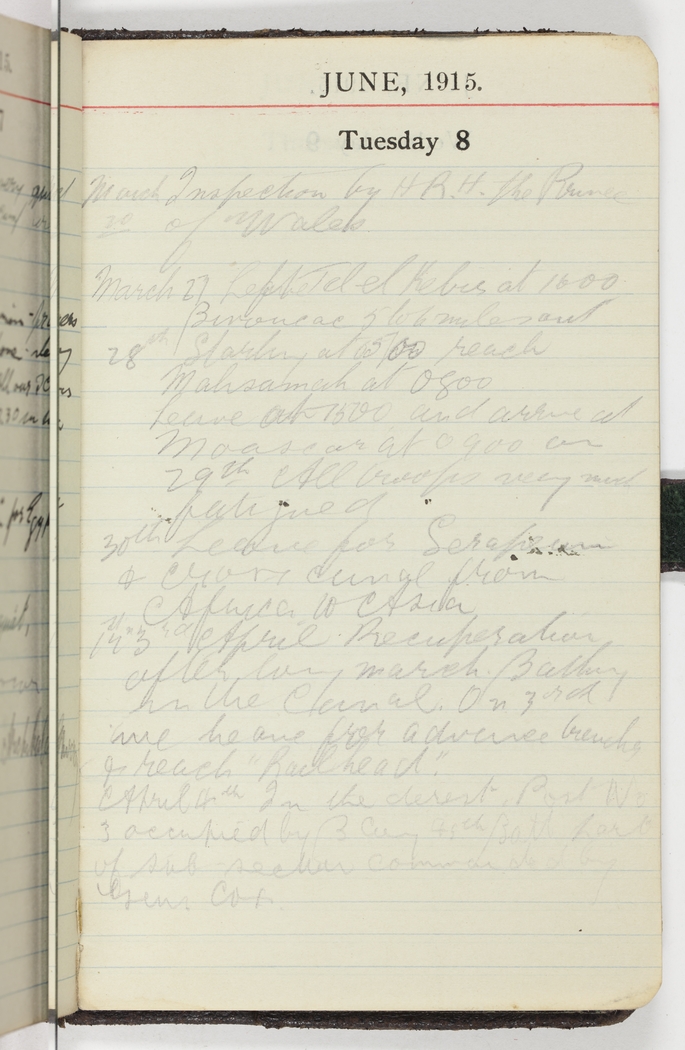 JUNE, 1915.
Tuesday 8
March Inspection by H.R.H. the Prince
20 of Wales.
March 27 Left Tel el Kebir at 1600
Bivouac 5 to 6 miles out
28th Starting at 0500 reach
Mahsamah at 0800
Leave at 1500 and arrive at
Moascar at 0900 on
29th All troops very much
fatigued
30th Leave for Serapeum
& cross canal from
Africa to Asia
1st 3rd April Recuperation
after long march. Bathing
in the Canal. On 3rd
we leave for advance trenches
& reach "Railhead".
April 4th In the desert. Post No
3 occupied by B Coy 45th Batt part
of sub-sector commanded by
Genl Cox.